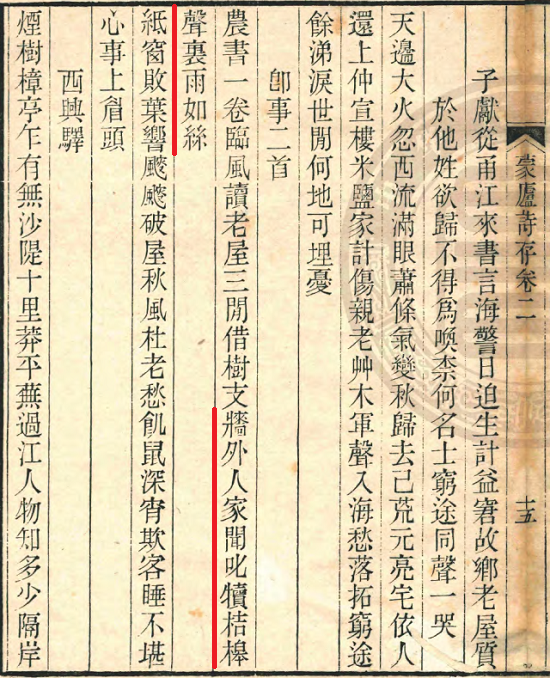 蒙廬詩存卷二
十五
子獻從甬江來書言海警日迫生計益窘故鄉老屋質
於他姓欲歸不得爲喚柰何名士窮途同聲一哭
天邊大火忽西流滿眼蕭條氣變秋歸去已荒元亮宅依人
還上仲宣樓米鹽家計傷親老艸木軍聲入海愁落拓窮途
餘涕淚世閒何地可埋憂
卽事二首
農書一卷臨風讀老屋三閒借樹支牆外人家聞叱犢桔槔
聲裏雨如絲
紙窗敗葉響颼颼破屋秋風杜老愁飢鼠深宵欺客睡不堪
心事上眉頭
西興驛
煙樹樟亭乍有無沙隄十里莽平蕪過江人物知多少隔岸